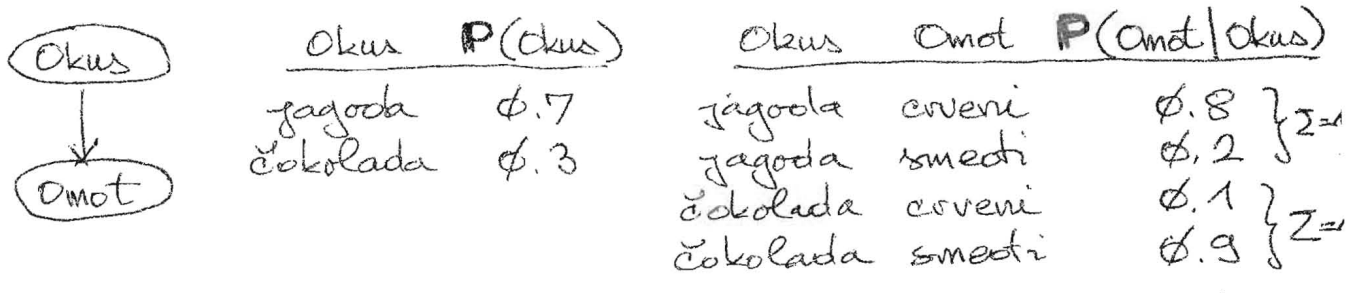 Okus
Omot
Okus P(Okus)
jagoda 0.7
čokolada 0.3
Okus Omot P(Omot|Okus)
jagoda crveni 0.8
jagoda smeđi 0.2
čokolada crveni 0.1
čokolada smeđi 0.9
Σ=1
Σ=